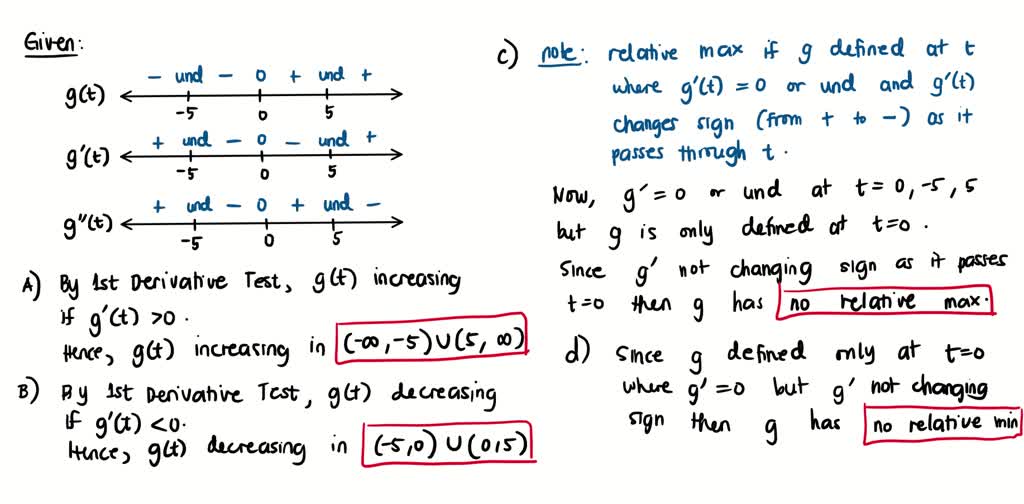 Given:
- und - 0 + und +
g(t)
-5 0 5
+ und - 0 - und +
g'(t)
-5 0 5
+ und - 0 + und -
g"(t)
-5 0 5
A) By 1st Derivative Test, g(t) increasing
if g'(t) >0.
Hence, g(t) increasing in (-∞,-5)∪(5, ∞)
B) By 1st Derivative Test, g(t) decreasing
if g'(t) <0.
Hence, g(t) decreasing in (-5,0) ∪ (0,5)
c) note: relative max if g defined at t
where g'(t) = 0 or und and g'(t)
changes sign (from + to -) as it
passes through t.
Now, g' = 0 or und at t = 0, -5, 5
but g is only defined at t=0.
Since g' not changing sign as it passes
t=0 then g has no relative max.
d) Since g defined only at t=0
where g' =0 but g' not changing
sign then g has no relative min